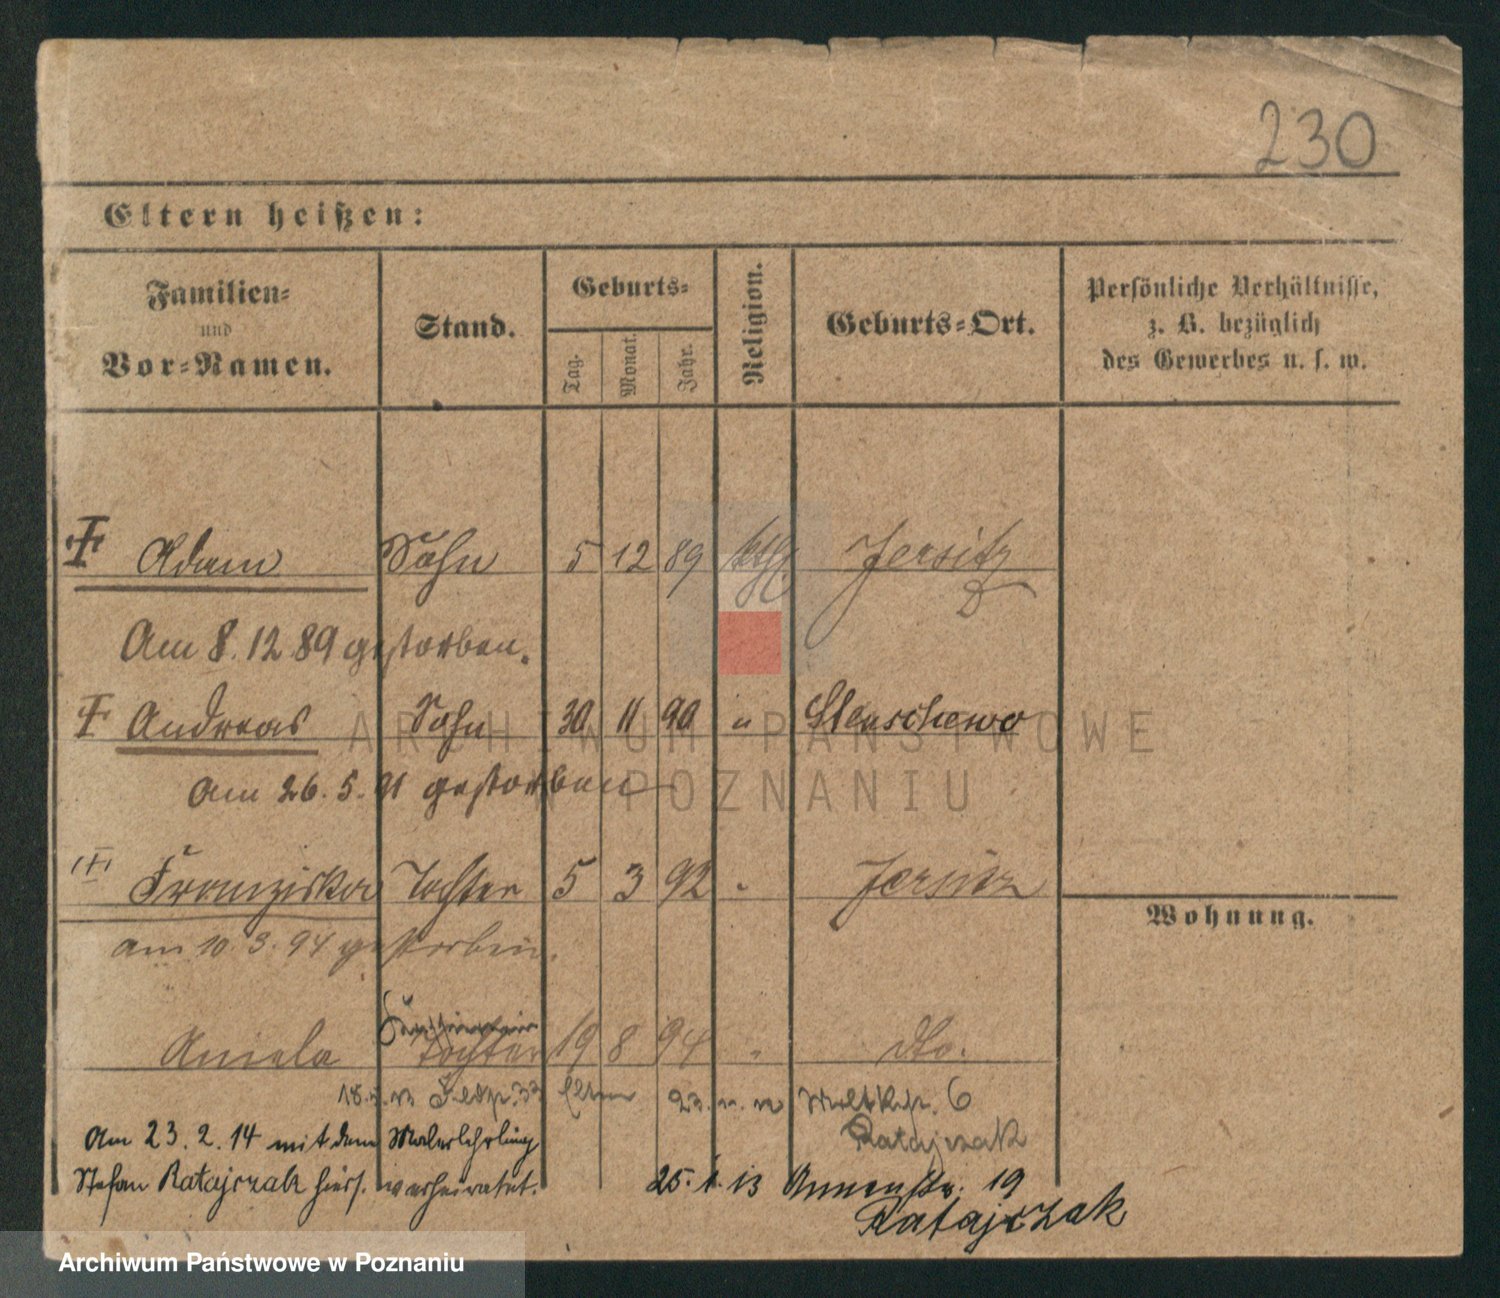 230
Eltern heißen:
Familien-
und
Vor-Namen.
Stand.
Geburts-
Tag.
Monat.
Jahr.
Religion.
Geburts-Ort.
Persönliche Verhältnisse,
z. B. bezüglich
des Gewerbes u. s. w.
Adam Sohn 5 12 89 kth. Jersitz
Am 8. 12 89 gestorben.
Andreas Sohn 30 11 90 " Stenschewo
Am 26. 5. 91 gestorben
Franziska Tochter 5 3 92 " Jersitz
Wohnung.
am 10. 3. 94 gestorben.
Aniela Tochter 19 8 94 " dto.
Eltern 6
Am 23. 2. 14 mit dem Malerlehrling Ratajczak
Stefan Ratajczak hiers. verheiratet. 25. 1. 13 Annenstr. 19
Ratajczak
ARCHIWUM PAŃSTWOWE
W POZNANIU
Archiwum Państwowe w Poznaniu